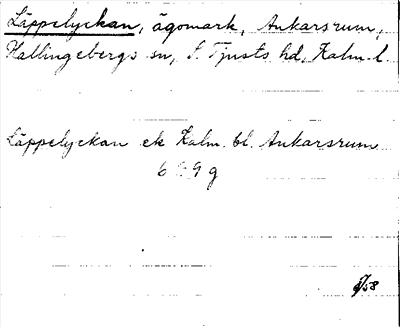 Läppelyckan, ägomark, Ankarsrum,
Hallingebergs sn, S. Tjusts hd, Kalm. l.
Läppelyckan ek Kalm. bl. Ankarsrum
6 9 g
58